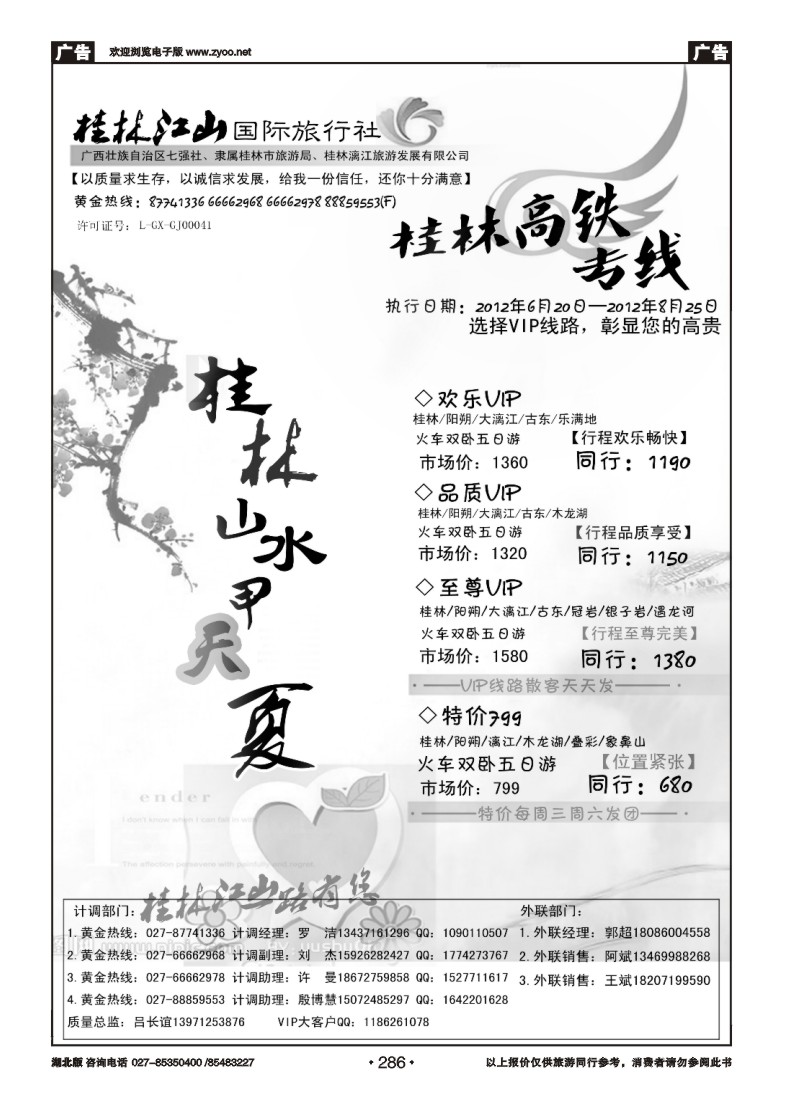 广告 欢迎浏览电子版 www.zyoo.net 广告
桂林江山国际旅行社
广西壮族自治区七强社、隶属桂林市旅游局、桂林漓江旅游发展有限公司
【以质量求生存，以诚信求发展，给我一份信任，还你十分满意】
黄金热线：87741336 66662968 66662978 88859553(F)
许可证号：L-GX-GJ00041
桂林高铁
专线
执行日期：2012年6月20日—2012年8月25日
选择VIP线路，彰显您的高贵
桂林山水甲天夏
◇欢乐VIP
桂林/阳朔/大漓江/古东/乐满地
火车双卧五日游 【行程欢乐畅快】
市场价：1360 同行：1190
◇品质VIP
桂林/阳朔/大漓江/古东/木龙湖
火车双卧五日游 【行程品质享受】
市场价：1320 同行：1150
◇至尊VIP
桂林/阳朔/大漓江/古东/冠岩/银子岩/遇龙河
火车双卧五日游 【行程至尊完美】
市场价：1580 同行：1380
·——VIP线路散客天天发——·
◇特价799
桂林/阳朔/漓江/木龙湖/叠彩/象鼻山
火车双卧五日游 【位置紧张】
市场价：799 同行：680
·——特价每周三周六发团——·
ender
I don't know when I can fall in with
The affection perseveres with painfully and regret
桂林江山路有您
计调部门： 外联部门：
1.黄金热线：027-87741336 计调经理：罗 洁13437161296 QQ：1090110507 1.外联经理：郭超18086004558
2.黄金热线：027-66662968 计调副理：刘 杰15926282427 QQ：1774273767 2.外联销售：阿斌13469988268
3.黄金热线：027-66662978 计调助理：许 曼18672759858 QQ：1527711617 3.外联销售：王斌18207199590
4.黄金热线：027-88859553 计调助理：殷博慧15072485297 QQ：1642201628
质量总监：吕长谊13971253876 VIP大客户QQ：1186261078
湖北版 咨询电话 027-85350400 /85483227 ·286· 以上报价仅供旅游同行参考，消费者请勿参阅此书